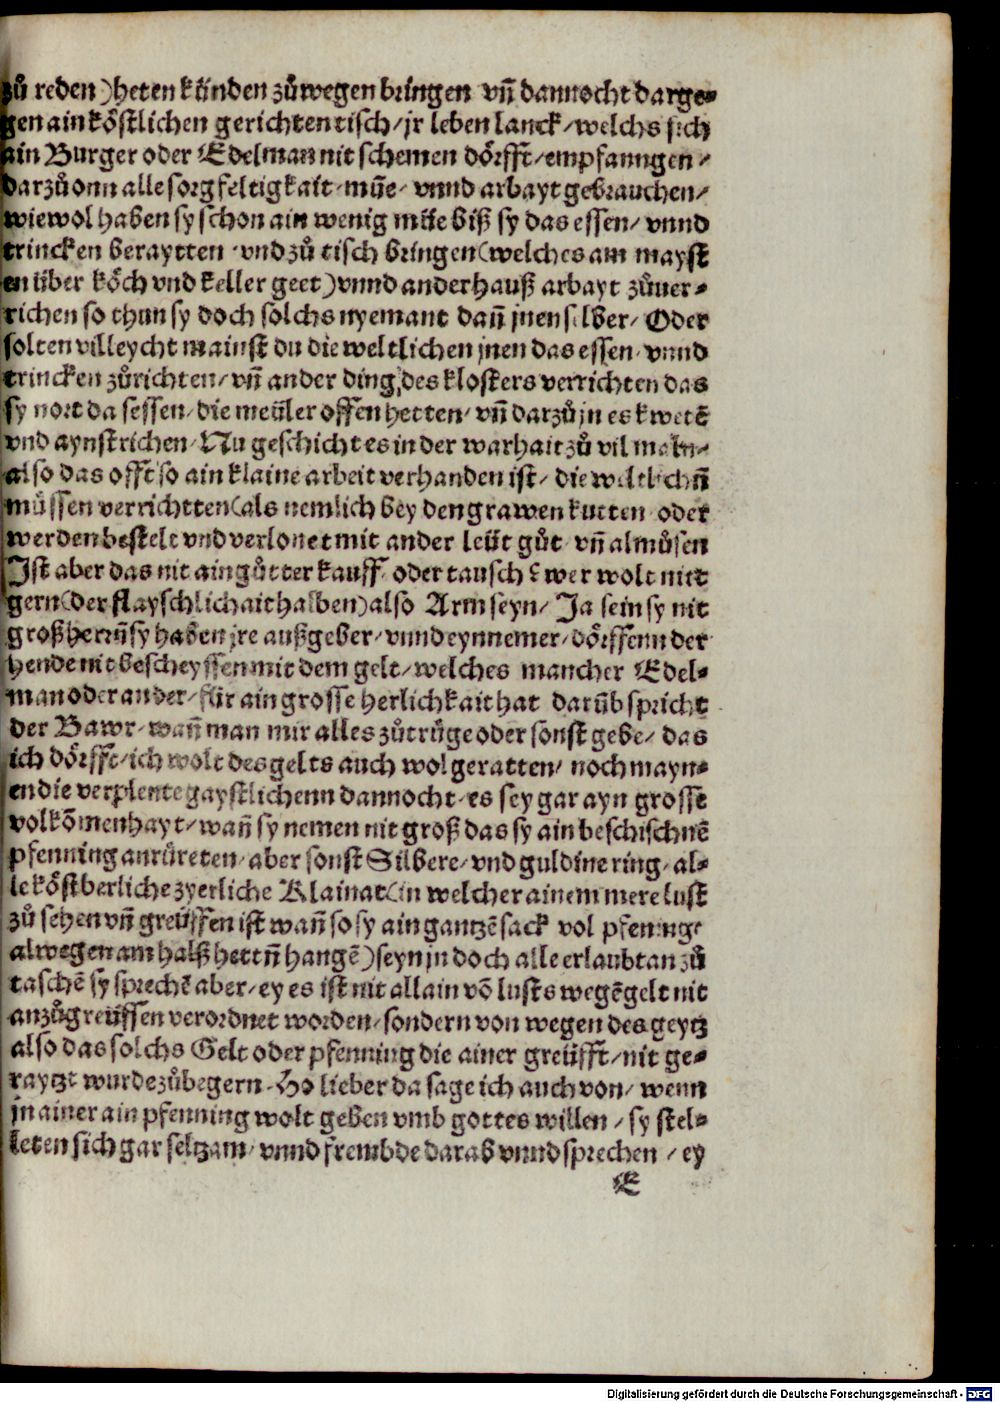 zů reden) heten künden zůwegen bringen vñ dannocht darge⸗
gen ain köstlichen gerichten tisch/ jr leben lanck/ welchs sich
ain Burger oder Edelman nit schemen dörfft/ empfanngen/
darzů onn alle sorgfeltigkait/ müe/ vnnd arbayt gebrauchen/
wiewol haben sy schon ain wenig müe biß sy das essen/ vnnd
trincken beraytten/ vnd zů tisch bringen (welches am mayst
en über köch vnd keller geet) vnnd ander hauß arbayt zůuer⸗
richen so thun sy doch solchs nyemant dañ jnen selber/ Oder
solten villeycht mainst du die weltlichen jnen das essen/ vnnd
trincken zůrichten/ vñ ander ding des klosters verrichten das
sy nort da sessen/ die meüler offen hetten/ vñ darzů jn es kwetē
vnd aynstrichen/ Nu geschicht es in der warhait zů vil maln/
also das offt so ain klaine arbeit verhanden ist/ die weltlichñ
müssen verrichtten (als nemlich bey den grawen kutten oder
werden bestelt vnd verlonet mit ander leüt gůt vñ almůsen
Ist aber das nit ain gůtter kauff/ oder tausch? wer wolt nitt
gern (der flayschlichait halben) also Arm seyn/ Ja sein sy nit
groß herrñ sy haben jre außgeber/ vnnd eynnemer/ dörffenn der
hende nit bescheyssen mit dem gelt/ welches mancher Edel⸗
man oder ander/ für ain grosse herlichkait hat darüb spricht
der Bawr/ wañ man mir alles zůtrüge oder sonst gebe/ das
ich dörfft/ ich wolt des gelts auch wol geratten/ noch mayn⸗
en die verplente gaystlichenn dannocht/ es sey gar ayn grosse
volkōmenhayt/ wañ sy nemen nit groß das sy ain beschischnē
pfenning anrüreten/ aber sonst Silbere/ vnd guldine ring/ al⸗
le köstberliche zyerliche Klainat (in welcher ainem mere lust
zů sehen vñ greüffen ist wañ so sy ain gantzē sack vol pfenninge
alwegen am halß hettñ hangē) seyn jn doch alle erlaubt an zů
taschē sy sprechē aber/ ey es ist nit allain vō lusts wegē gelt nit
anzůgreüffen verordnet worden/ sondern von wegen des geytz
also das solchs Gelt oder pfenning die ainer greüfft/ nit ge⸗
raytzt wurde zůbegern/ Ho lieber da sage ich auch von/ wenn
jn ainer ain pfenning wolt geben vmb gottes willen/ sy stel⸗
leten sich gar seltzam/ vnnd frembde darab vnnd sprechen/ ey
E
Digitalisierung gefördert durch die Deutsche Forschungsgemeinschaft - DFG